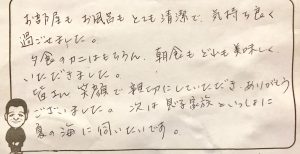 お部屋も お風呂も とても清潔で、気持ち良く
過ごせました。
夕食のカニはもちろん、朝食も どれも美味しく
いただきました。
皆さん 笑顔で 親切にしていただき、ありがとう
ございました。 次は 息子家族といっしょに
夏の海に伺いたいです。